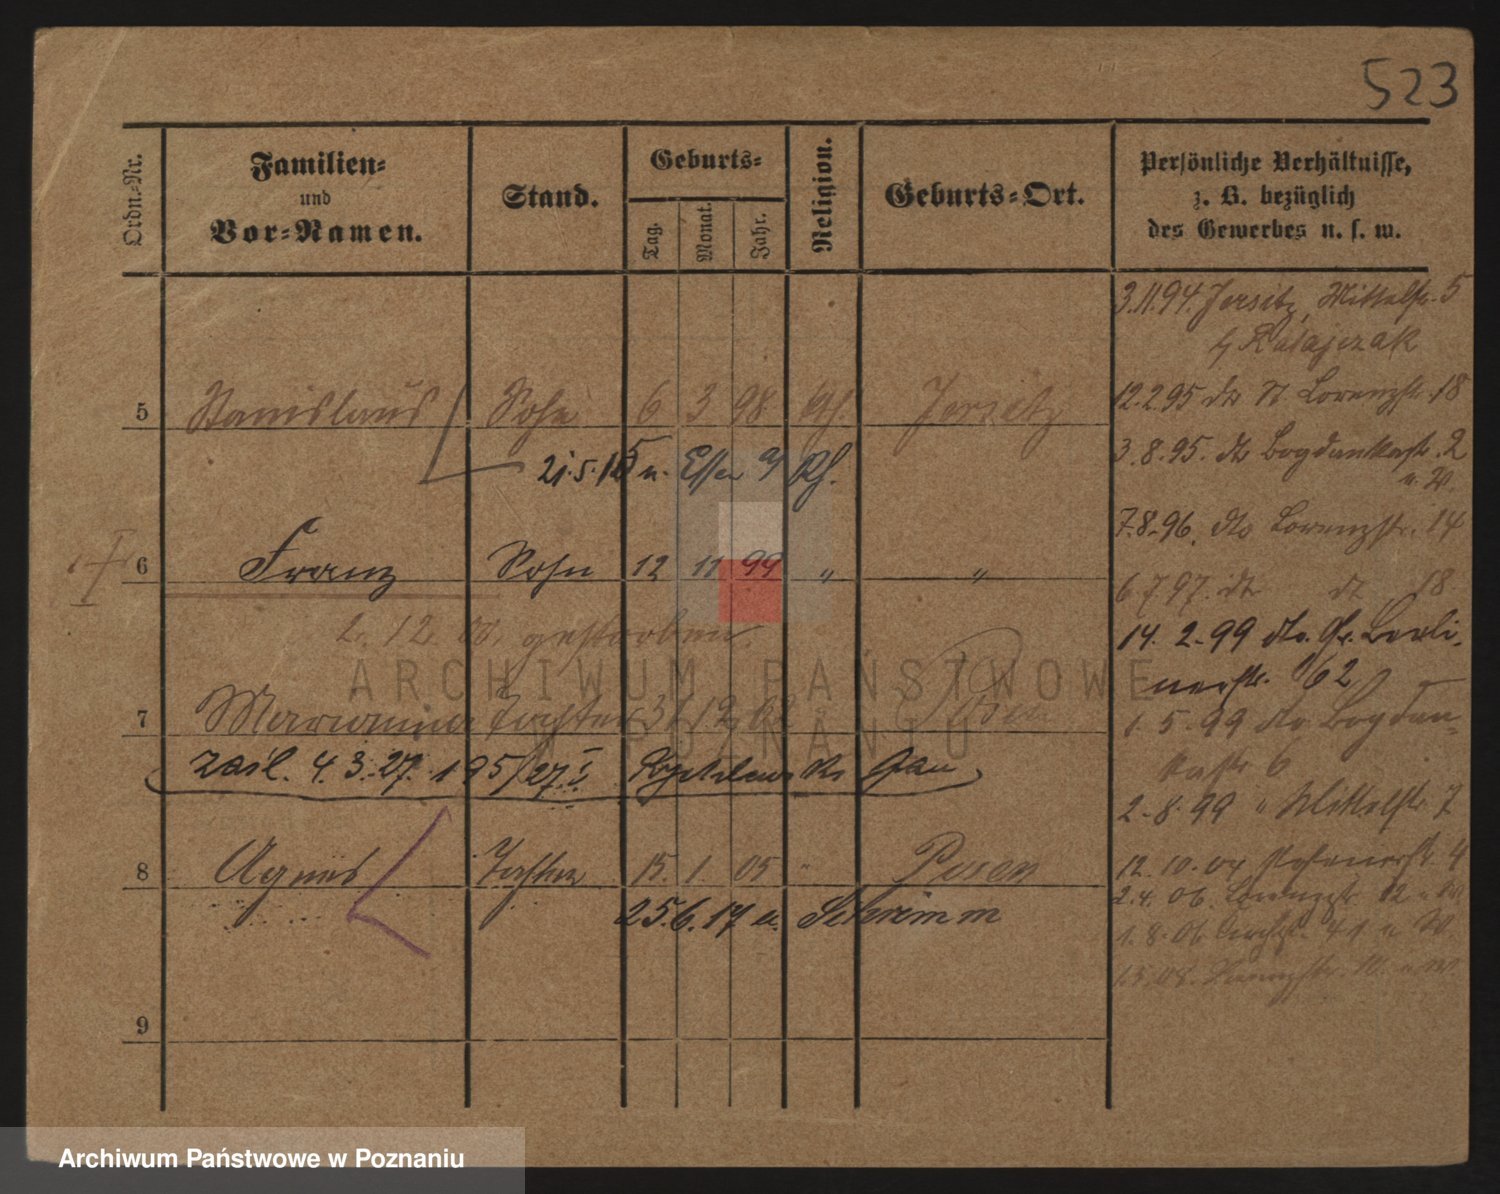 523
Ordn.-Nr.
Familien-
und
Vor-Namen.
Stand.
Geburts-
Tag.
Monat.
Jahr.
Religion.
Geburts-Ort.
Persönliche Verhältnisse,
z. B. bezüglich
des Gewerbes u. s. w.
3.11.94. Jersitz, Mittelstr. 5
b/ Ratajczak
5 Stanislaus Sohn 6 3 98 Jersitz
12.2.95 do Lorenzstr. 18
21.5.15 n. Essen a/ Rh.
3.8.95. do Bogdankastr. 2
6 Franz Sohn 12 11 99 " "
7.8.96. dto Lorenzstr. 14
6 7 97. dt dt 18
2. 12 00. gestorben
14. 2. 99 dto. Gr. Berli-
nerstr. 62
7 Marianna Tochter 31 12 02 Posen
1. 5. 99 dto Bogdan-
kastr 6
zaśl. 4. 3. 27. 195/27. I
2. 8. 99 " Mittelstr. 7
8 Agnes Tochter 15. 1 05 " Posen
12. 10. 04 4
25.6.17 n. Schrimm
2. 4. 06. Lorenzstr. 12
1. 8. 06
9
ARCHIWUM PAŃSTWOWE
W POZNANIU
Archiwum Państwowe w Poznaniu